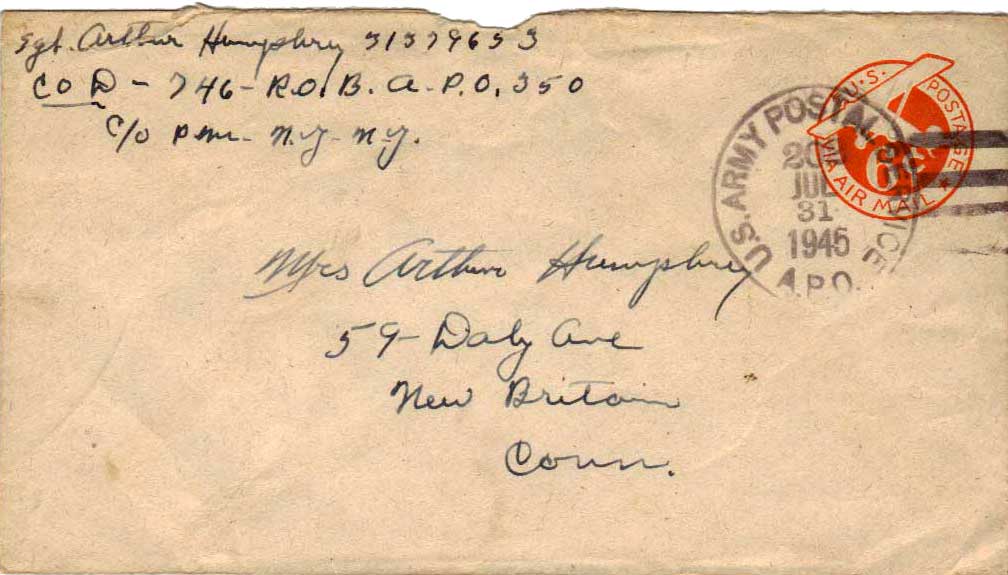 Sgt. Arthur Humphrey 31379653
Co D - 746 - R.O.B. A.P.O. 350
c/o P.M. - N.Y. - N.Y.
U.S. POSTAGE
VIA AIR MAIL
6¢
U.S. ARMY POSTAL SERVICE
JUL
31
1945
A.P.O.
Mrs Arthur Humphrey
59 - Daly Ave
New Britain
Conn.